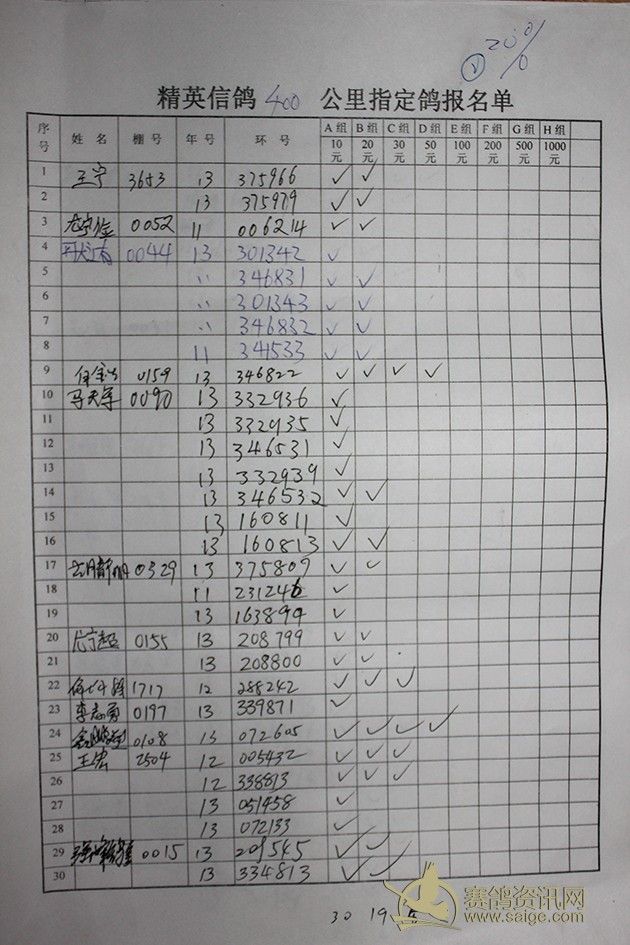 ② 200%
精英信鸽 400 公里指定鸽报名单
序号 姓名 棚号 年号 环号 A组 10元 B组 20元 C组 30元 D组 50元 E组 100元 F组 200元 G组 500元 H组 1000元
1 王宁 3653 13 375966 ✓ ✓
2 13 375979 ✓ ✓
3 0052 11 006214 ✓ ✓
4 0044 13 301342 ✓
5 〃 346831 ✓ ✓
6 〃 301343 ✓ ✓
7 〃 346832 ✓ ✓
8 11 341533 ✓ ✓
9 0159 13 346822 ✓ ✓ ✓ ✓
10 马天军 0090 13 332936 ✓
11 13 332935 ✓
12 13 346531 ✓
13 13 332939 ✓
14 13 346532 ✓ ✓
15 13 160811 ✓
16 13 160813 ✓ ✓
17 0329 13 375809 ✓ ✓
18 11 231246 ✓
19 13 163894 ✓
20 0155 13 208799 ✓ ✓
21 13 208800 ✓ ✓
22 1717 12 288242 ✓ ✓ ✓
23 李志勇 0197 13 339871 ✓
24 0108 13 072605 ✓ ✓ ✓ ✓
25 王宏 2504 12 005432 ✓ ✓ ✓
26 12 338813 ✓ ✓ ✓
27 13 051458 ✓
28 13 072133 ✓
29 0015 13 209545 ✓ ✓
30 13 334813 ✓ ✓
30 19 5
赛鸽资讯网
www.saige.com